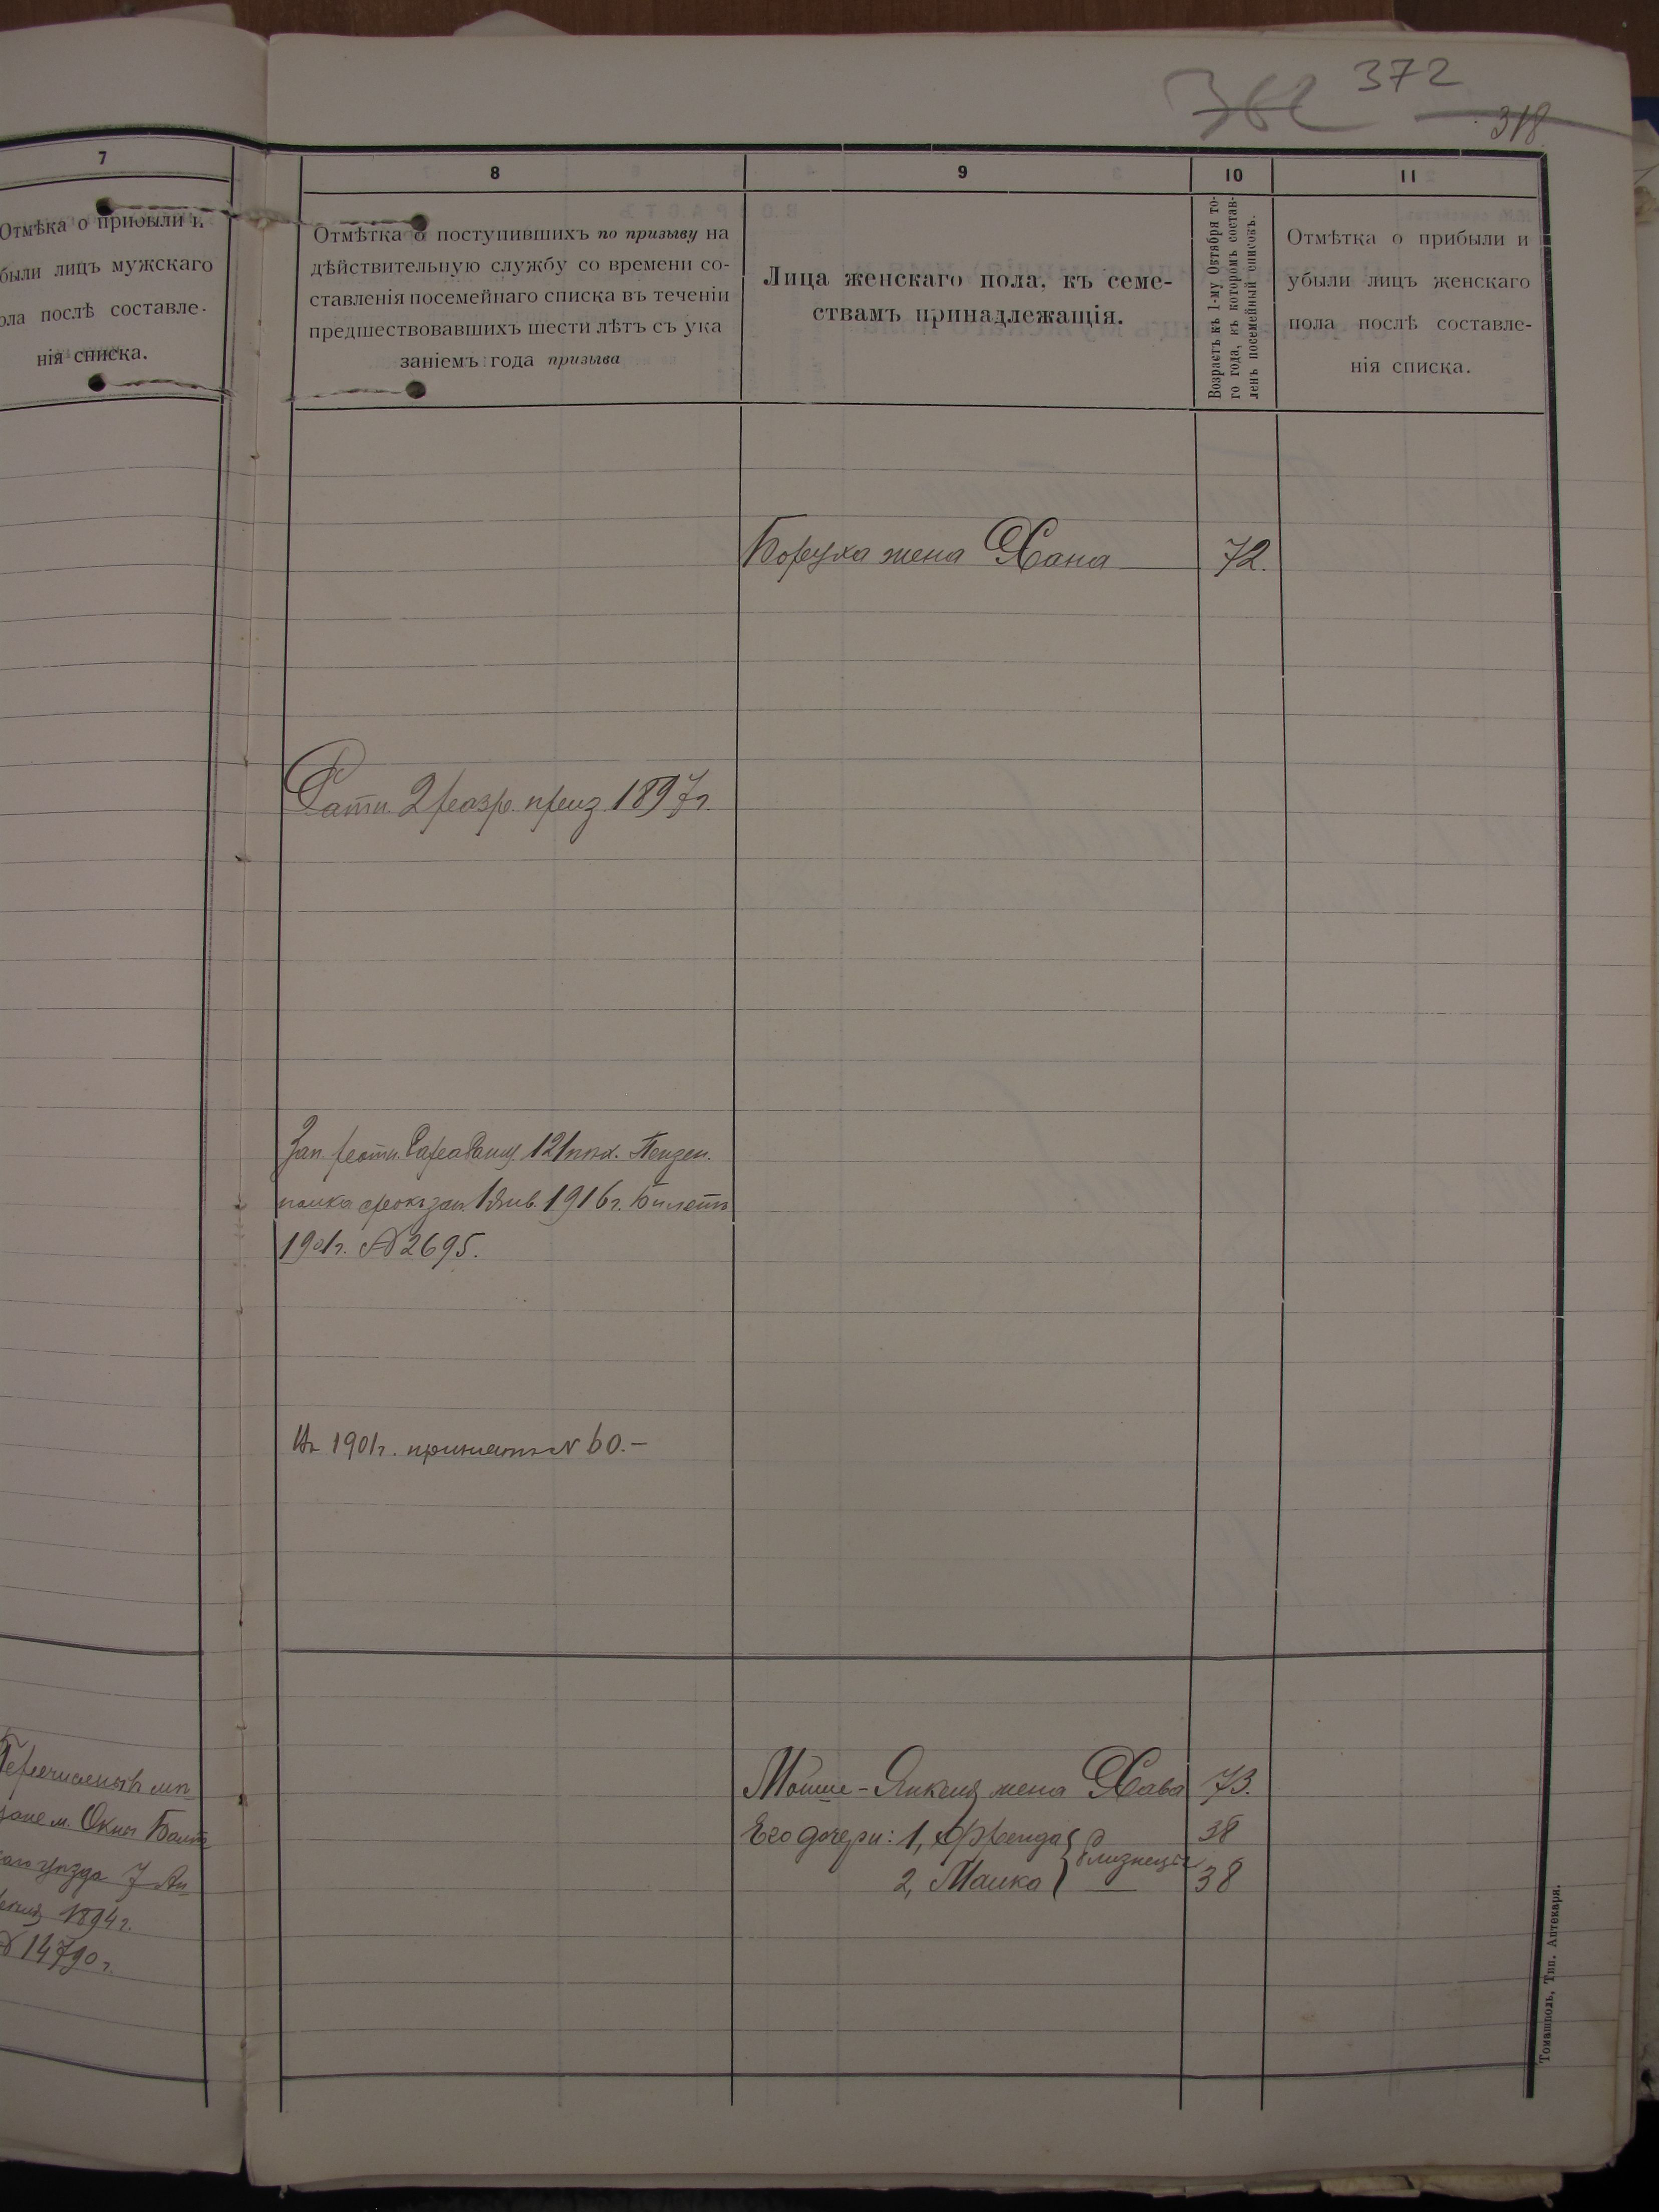 372
318
7
Отмѣка о прибыли и
были лицъ мужскаго
ола послѣ составле-
нія списка.
8
Отмѣтка о поступившихъ по призыву на
дѣйствительную службу со времени со-
ставленія посемейнаго списка въ теченіи
предшествовавшихъ шести лѣтъ съ ука
заніемъ года призыва
9
Лица женскаго пола, къ семе-
ствамъ принадлежащія.
10
Возрастъ къ 1-му Октября то-
го года, въ которомъ состав-
ленъ посемейный списокъ.
11
Отмѣтка о прибыли и
убыли лицъ женскаго
пола послѣ составле-
нія списка.
Боруха жена Хана 72.
Ратн. 2 разр. приз. 1897 г.
Зап. 121 пѣх. Пензен.
полка срокъ зап. 1 Янв. 1916 г. билетъ
1901 г. № 2695.
1901 г. принятъ № 60.-
Перечисленъ
м. Окны Балт
уѣзда 7 Ап
1894 г.
№ 14790 г.
Мошке-Янкеля жена Хава 73.
Его дочери: 1, Фрейда близнецы 38
2, Малка 38
Томашполь, Тип. Аптекаря.